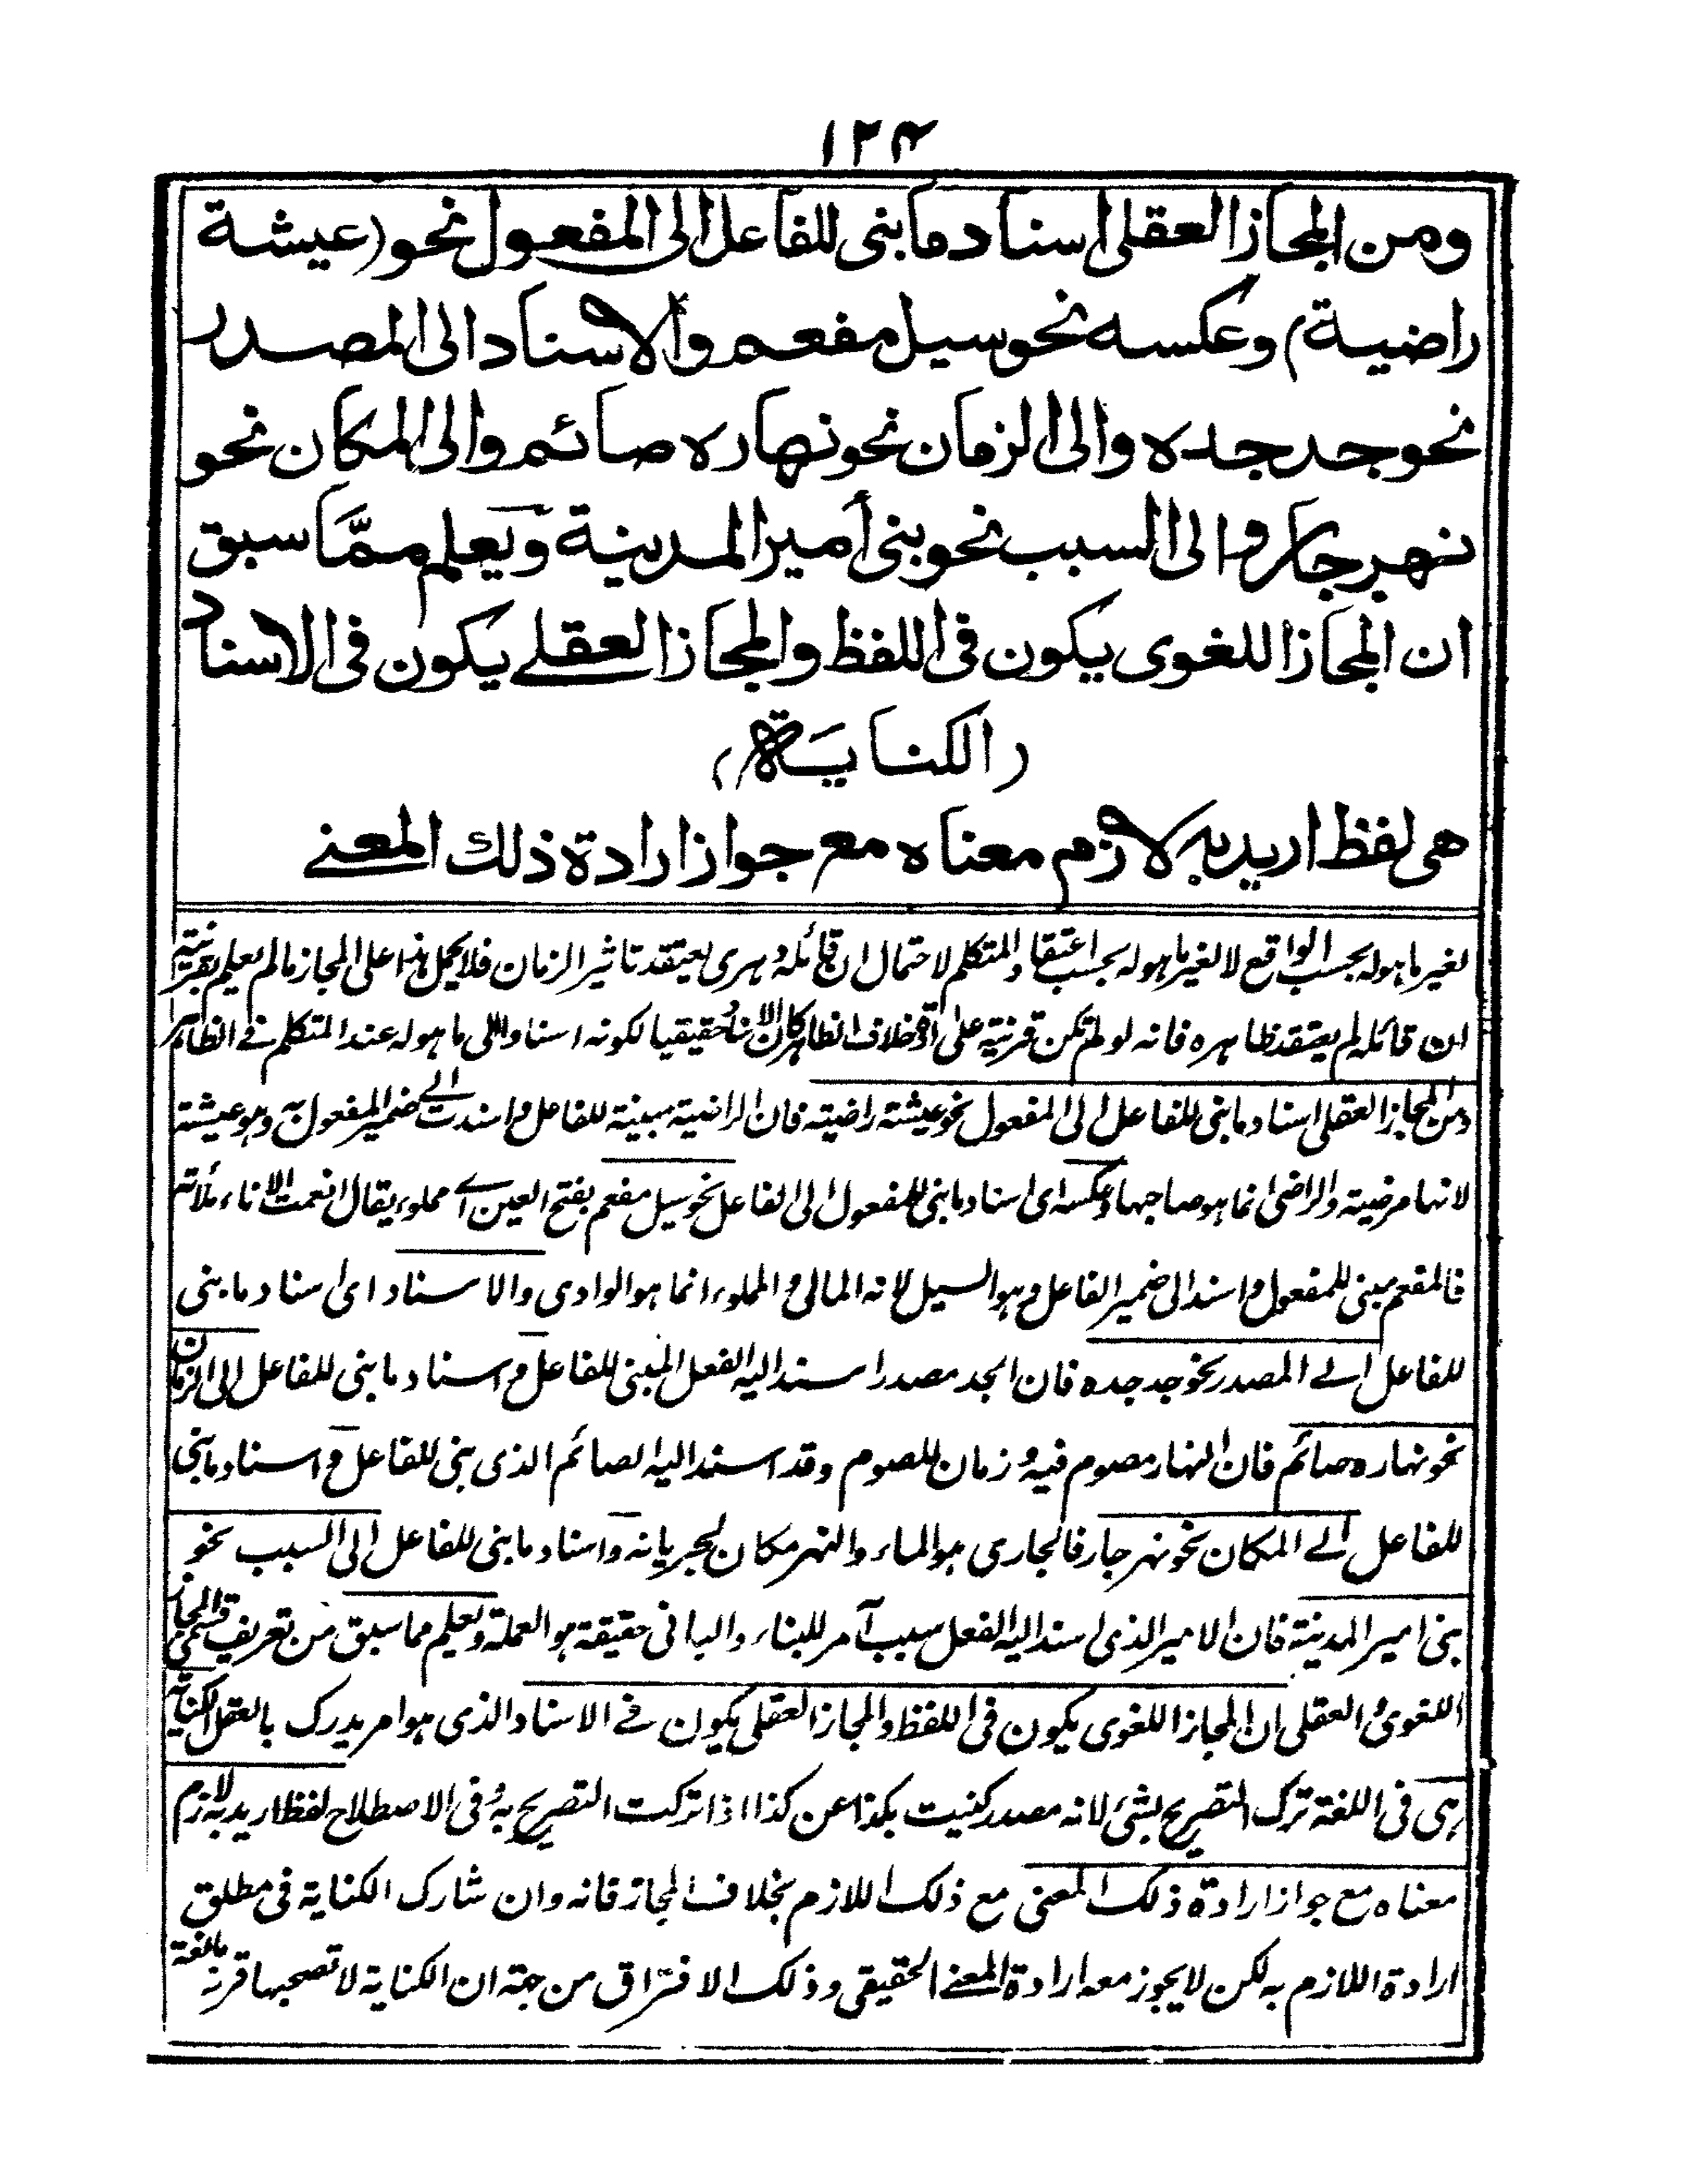 ١٢٤
ومن المجاز العقلى اسناد ما بنى للفاعل الى المفعول نحو (عيشة
راضية) وعكسه نحو سيل مفعم والاسناد الى المصدر
نحو جد جده والى الزمان نحو نهاره صائم والى المكان نحو
نهر جار والى السبب نحو بنى أمير المدينة ويعلم ممّا سبق
ان المجاز اللغوى يكون فى اللفظ والمجاز العقلے يكون فى الاسناد
(الكناية)
هى لفظ اريد به لازم معناه مع جواز ارادة ذلك المعنے
لغير ما هو له بحسب الواقع لا لغير ما هو له بحسب اعتقاد المتكلم لاحتمال ان قائله دهرى يعتقد تاثير الزمان فلا يحمل هذا على المجاز ما لم يعلم بقرينة
ان قائله لم يعتقد ظاهره فانه لو لم تكن قرينة على خلاف الظاهر كان الاسناد حقيقيا لكونه اسنادا الى ما هو له عند المتكلم فے الظاهر
ومن المجاز العقلى اسناد ما بنى للفاعل الى المفعول نحو عيشة راضية فان الراضية مبينة للفاعل واسندت الے ضمير المفعول به وهو عيشة
لانها مرضية والراضى انما هو صاحبها وعكسه اى اسناد ما بنى للمفعول الى الفاعل نحو سيل مفعم بفتح العين اے مملوء يقال افعمت الاناء ملأته
فالمفعم مبنى للمفعول واسند الى ضمير الفاعل وهو السيل لانه المالى والمملوء انما هو الوادى والاسناد اى اسناد ما بنى
للفاعل الے المصدر نحو جد جده فان الجد مصدر اسند اليه الفعل المبنى للفاعل واسناد ما بنى للفاعل الى الزمان
نحو نهاره صائم فان النهار مصوم فيه وزمان للصوم وقد اسند اليه الصائم الذى بنى للفاعل واسناد ما بنى
للفاعل الے المكان نحو نهر جار فالجارى هو الماء والنهر مكان لجريانه واسناد ما بنى للفاعل الى السبب نحو
بنى امير المدينة فان الامير الذى اسند اليه الفعل سبب آمر للبناء والبانى حقيقة هو العملة ويعلم مما سبق من تعريف قسمى المجاز
اللغوى والعقلى ان المجاز اللغوى يكون فى اللفظ والمجاز العقلى يكون فے الاسناد الذى هو امر يدرك بالعقل الكناية
هى فى اللغة ترك التصريح بشئ لانه مصدر كنيت بكذا عن كذا اذا تركت التصريح به وفى الاصطلاح لفظ اريد به لازم
معناه مع جواز ارادة ذلك المعنى مع ذلك اللازم بخلاف المجاز فانه وان شارك الكناية فى مطلق
ارادة اللازم به لكن لا يجوز معه ارادة المعنے الحقيقى وذلك الافتراق من جهة ان الكناية لا تصحبها قرينة مانعة